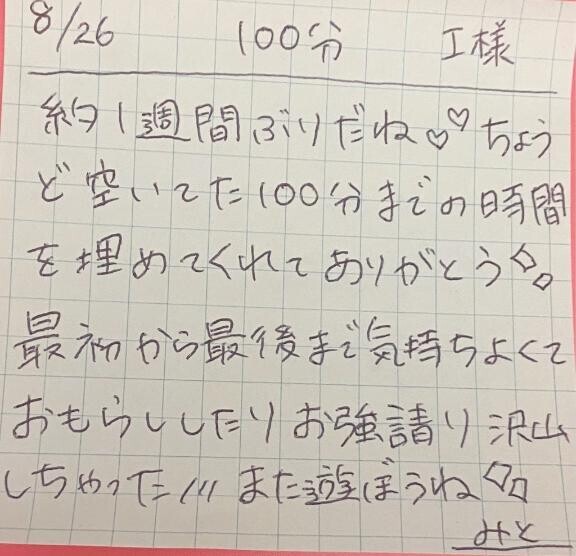 8/26 100分 I様
約1週間ぶりだね♡♡ちょう
ど空いてた100分までの時間
を埋めてくれてありがとう◇◇
最初から最後まで気持ちよくて
おもらししたりお強請り沢山
しちゃった/// また遊ぼうね◇◇
みと